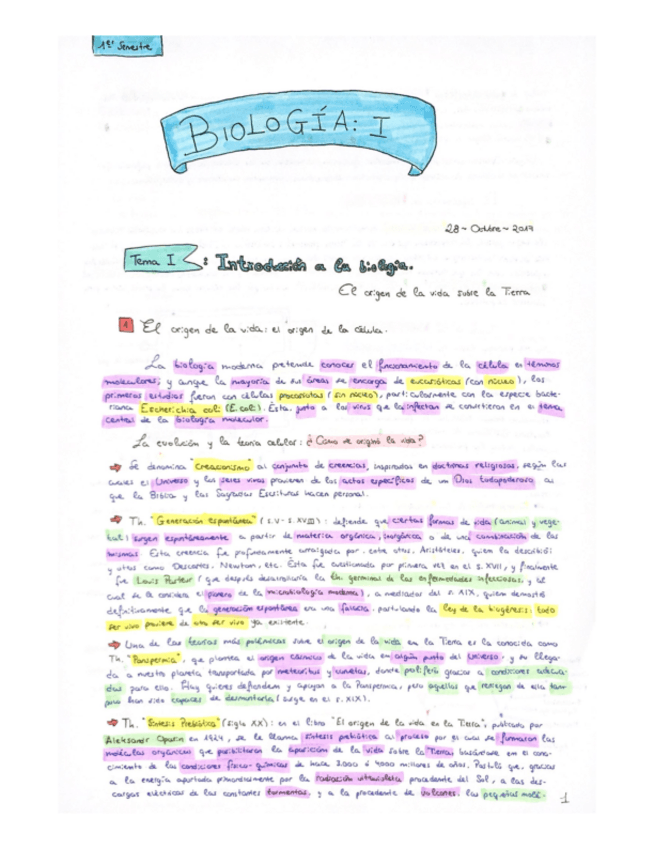 1er Semestre
BIOLOGÍA: I
28~ Octubre ~ 2017
Tema I : Introducción a la biología.
El origen de la vida sobre la Tierra
1 El origen de la vida: el origen de la célula.
La biología moderna pretende conocer el funcionamiento de la célula en términos
moleculares, y aunque la mayoría de sus áreas se encarga de eucarióticas (con núcleo), los
primeros estudios fueron con células procariotas (sin núcleo), particularmente con la especie bacte-
riana Escherichia coli (E. coli). Ésta, junto a los virus que la infectan se convirtieron en el tema
central de la biología molecular.
La evolución y la teoría celular: ¿Cómo se originó la vida?
→ Se denomina "creacionismo" al conjunto de creencias, inspiradas en doctrinas religiosas, según las
cuales el Universo y los seres vivos provienen de los actos específicos de un Dios todopoderoso, al
que la Biblia y las Sagradas Escrituras hacen personal.
→ Th. "Generación espontánea" (s.V - s.XVIII): defiende que ciertas formas de vida (animal y vege-
tal) surgen espontáneamente a partir de materia orgánica, inorgánica o de una combinación de las
mismas. Esta creencia fue profundamente arraigada por, entre otros, Aristóteles, quien la describió
y otros como Descartes, Newton, etc. Ésta fue cuestionada por primera vez en el s. XVII, y finalmente
fue Louis Pasteur (que después desarrollaría la th. germinal de las enfermedades infecciosas, y al
cual se le considera el pionero de la microbiología moderna), a mediados del s. XIX, quien demostró
definitivamente que la generación espontánea era una falacia, postulando la ley de la biogénesis: todo
ser vivo proviene de otro ser vivo ya existente.
→ Una de las teorías más polémicas sobre el origen de la vida en la Tierra es la conocida como
Th. "Panspermia", que plantea el origen cósmico de la vida en algún punto del Universo, y su llega-
da a nuestro planeta transportada por meteoritos y cometas, donde proliferó gracias a condiciones adecua-
das para ello. Hay quienes defienden y apoyan a la Panspermia, pero aquellos que reniegan de ella tam-
poco han sido capaces de desmontarla (surge en el s. XIX).
→ Th. "Síntesis Prebiótica" (siglo XX): en el libro "El origen de la vida en la Tierra", publicado por
Aleksandr Oparin en 1924, se le llama síntesis prebiótica al proceso por el cual se formaron las
moléculas orgánicas que posibilitaron la aparición de la vida sobre la Tierra, basándose en el cono-
cimiento de las condiciones físico-químicas de hace 3000 ó 4000 millones de años. Postuló que, gracias
a la energía aportada primordialmente por la radiación ultravioleta procedente del Sol, a las des-
cargas eléctricas de las constantes tormentas, y a la procedente de volcanes, las pequeñas molé-
1